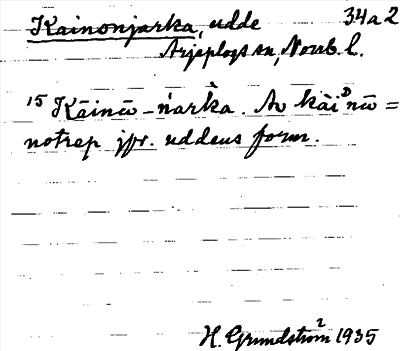 Kainonjarka, udde 34a2
Arjeplogs sn, Norrb. l.
15 Kāinω̄ - ńarkˋa. Av kàiᴰnω̄ =
notrep jfr. uddens form.
H. Grundström 2 1935